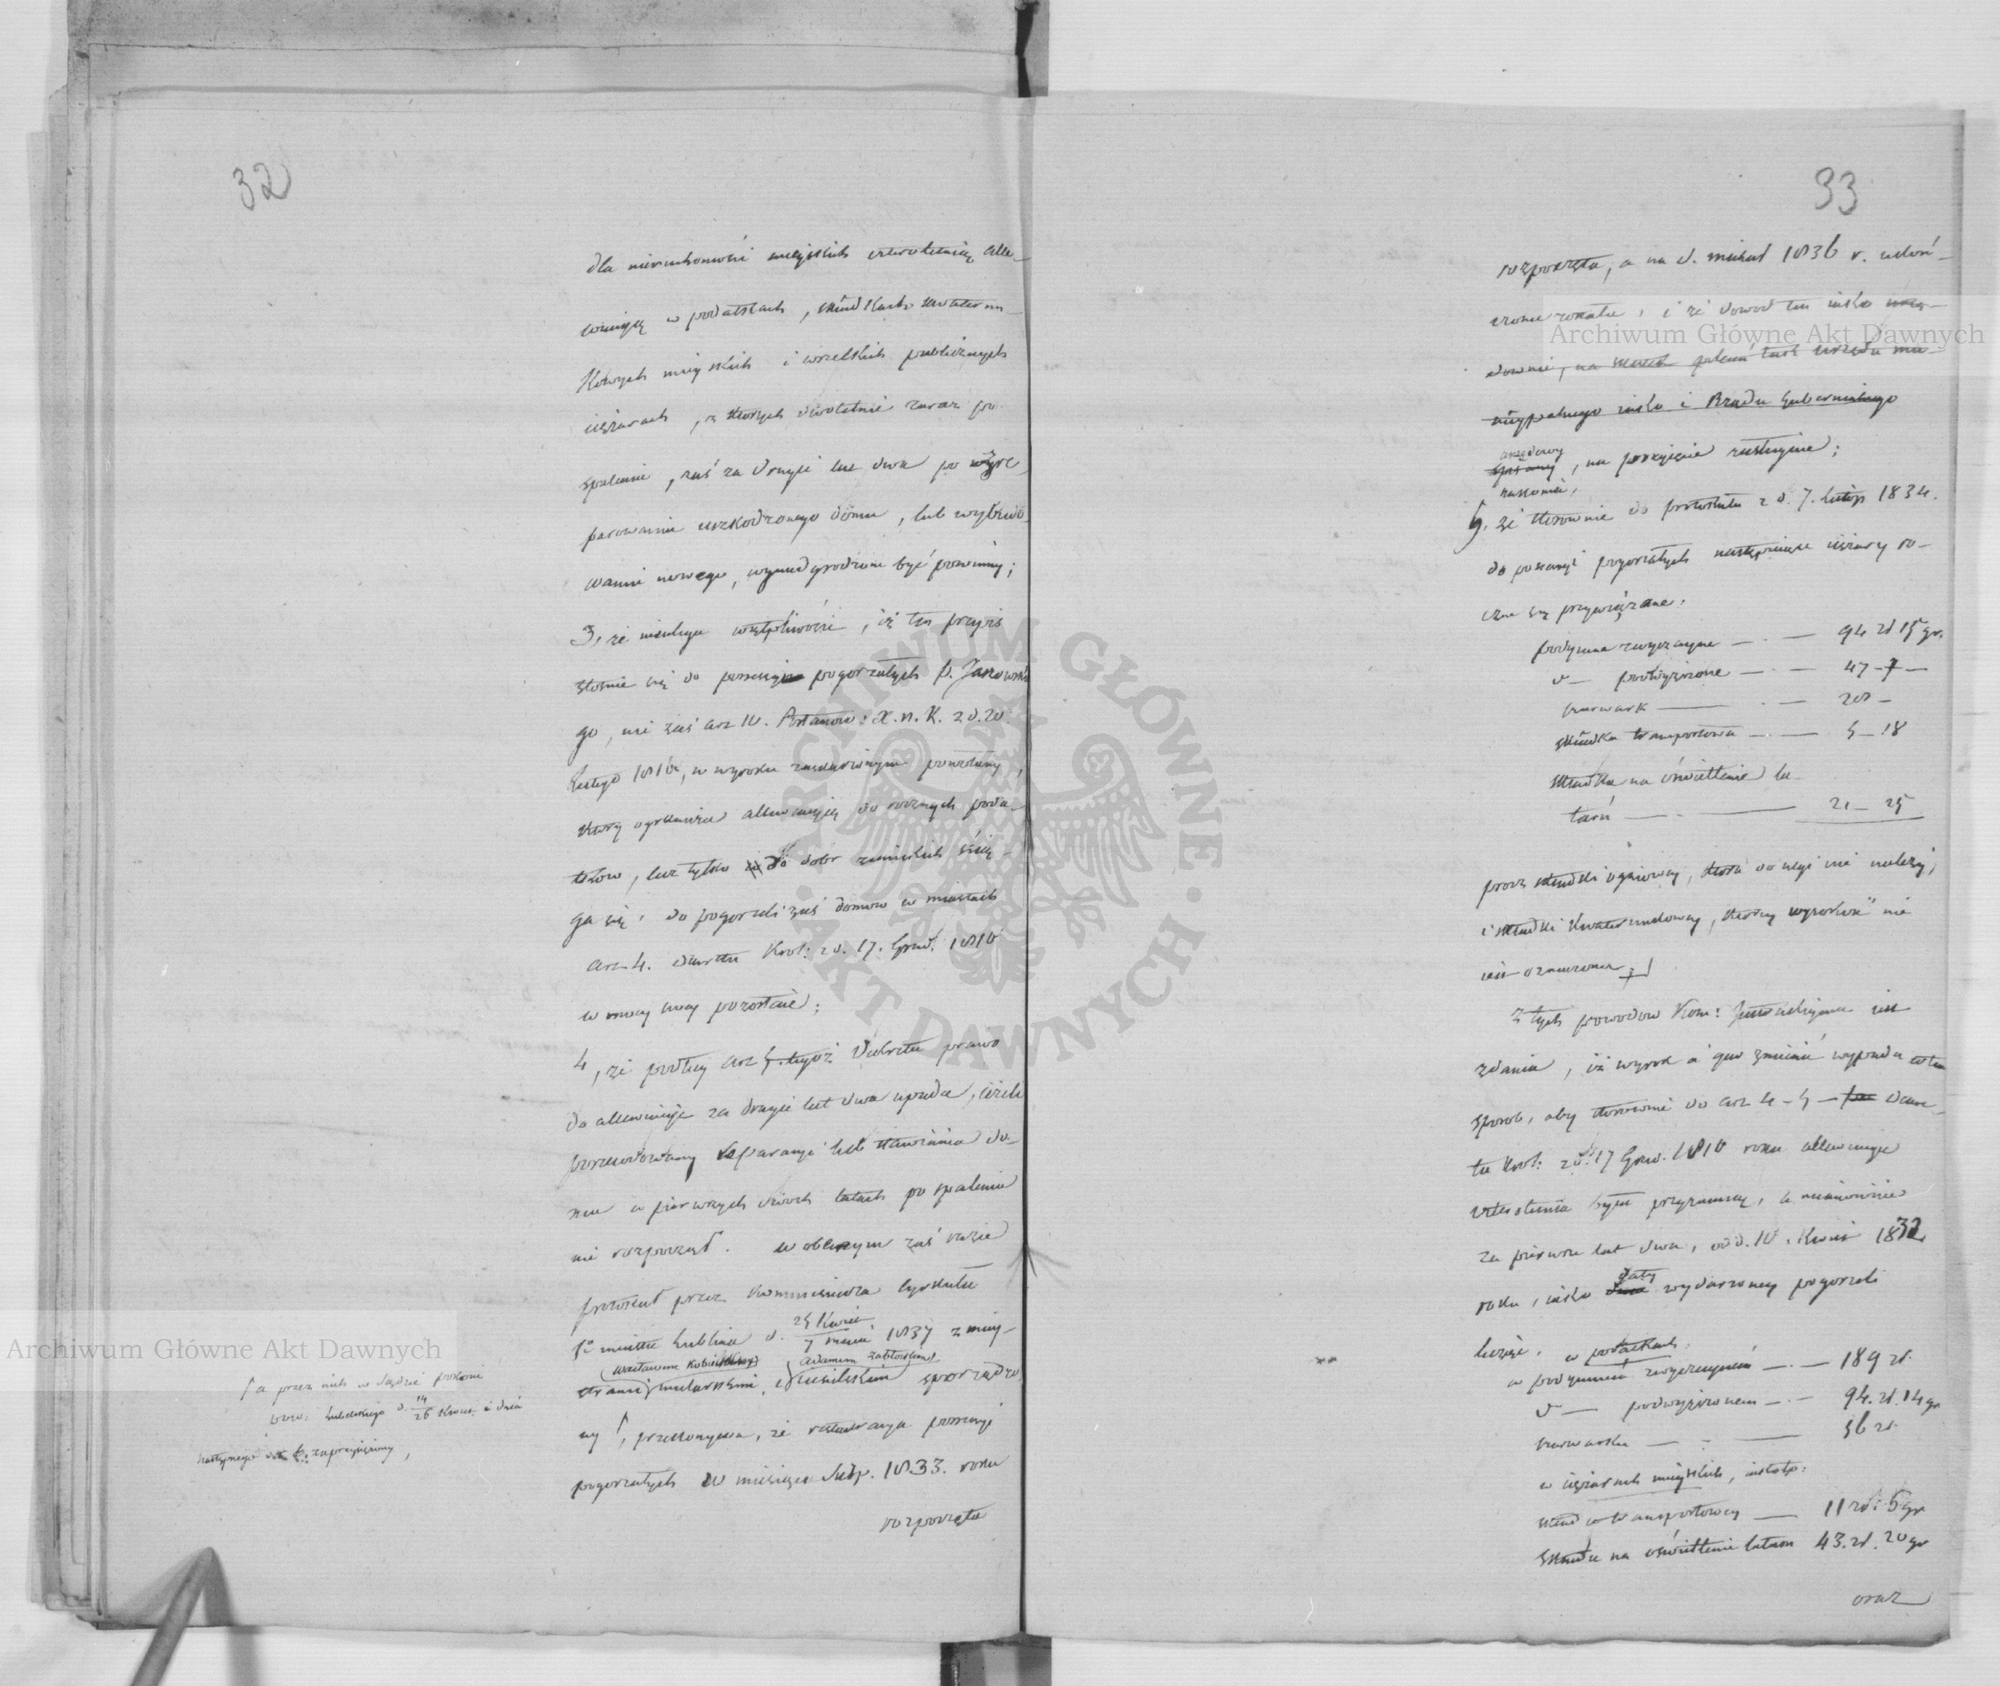 32
dla nieruchomości miejskich uzwolenia alle-
wiacyą w podatkach, składkach kwaterun-
kowych miejskich i wszelkich publicznych
ciężarach, z których dwuletnie zaraz po
spaleniu, zaś za drugie lat dwa po wyre-
parowaniu uszkodzonego domu, lub wybudo-
waniu nowego, wynadgrodzone być powinny;
3, że nieulega wątpliwości, iż ten przepis
stosuie się do possessyi pogorzałych p. Janowskie-
go, nie zaś art 10. Postanow: X. n. K. z d. 20.
Lutego 1816, w wyroku zaskarżonym powołany,
który ogranicza allewiacyą do rocznych poda-
tków, lecz tylko do dóbr ziemskich ścią-
ga się, do pogorzeli zaś domów w miastach
art 4. dekretu Król: z d. 17. Grud. 1810
w mocy swey pozostaie;
4, że podług art 5. tegoż Dekretu prawo
do allewiacyi za drugie lat dwa upada, ieżeli
poszkodowany reparacyi lub stawienia do-
mu w pierwszych dwóch latach po spaleniu
nie rozpoczął. w obecnym zaś razie
protokuł przez Kommissarza Cyrkułu
1o miasta Lublina d. 25 Kwiet / 7 maia 1837 z maj-
Wacławem Kobierskim Adamem Zabłockim
strami mularskim, i ciesielskim sporządzo
ny, przekonywa, że restauracya possessyi
pogorzałych w miesiącu Listop. 1833. roku
rozpoczęta
a przez nich w Sądzie pokoiu
pow: Lubelskiego d. 14/26 Kwiet. i dnia
następnego zaprzysiężony,
33
rozpoczęta, a na d. 1836 r. ukoń-
czona została, i że dowod ten iako urzę-
downie, na skutek poleceń tak Urzędu mu-
nicypalnego iako i Rządu Gubernialnego
urzędowy
spisany, na przyięcie zasługuie;
nakoniec,
5. że stosownie do protokułu z d. 7. Lutego 1834.
do possessyi pogorzałych następuiące ciężary ro-
czne są przywiązane:
podymne zwyczayne — . — 94 zł 15 gr.
d — podwyższone — . — 47 - 7 —
szarwark — . — 28 —
składka transportowa — . — 5 - 18
składka na oświetlenie la-
tarń — . — 21 — 25
prócz składki ogniowey, która do tego nie należy,
i składki kwaterunkowey, którey wysokość nie
iest oznaczona.
Z tych powodów Kom: Instrukcyjna iest
zdania, iż wyrok à quo zmienić wypada w ten
sposob, aby stosownie do art 4 - 5 — Dekre-
tu Król: z d. 17 Grud. 1810 roku allewiacya
była przyznaną, a mianowicie
za pierwsze lat dwa, od d. 10. Kwiet 1832
daty
roku, iako wydarzoney pogorzeli
licząc, w podatkach.
w podymném zwyczayném — . — 189 zł.
d — podwyższonem — . — 94. zł. 14 gr
szarwarku — . — 56 zł.
w ciężarach mieyskich, iakoto:
skład: transportowey — 11 zł. 6 gr
składce na oświetlenie latarn 43. zł. 20 gr
oraz
Archiwum Główne Akt Dawnych
Archiwum Główne Akt Dawnych
ARCHIWUM GŁÓWNE · AKT DAWNYCH ·